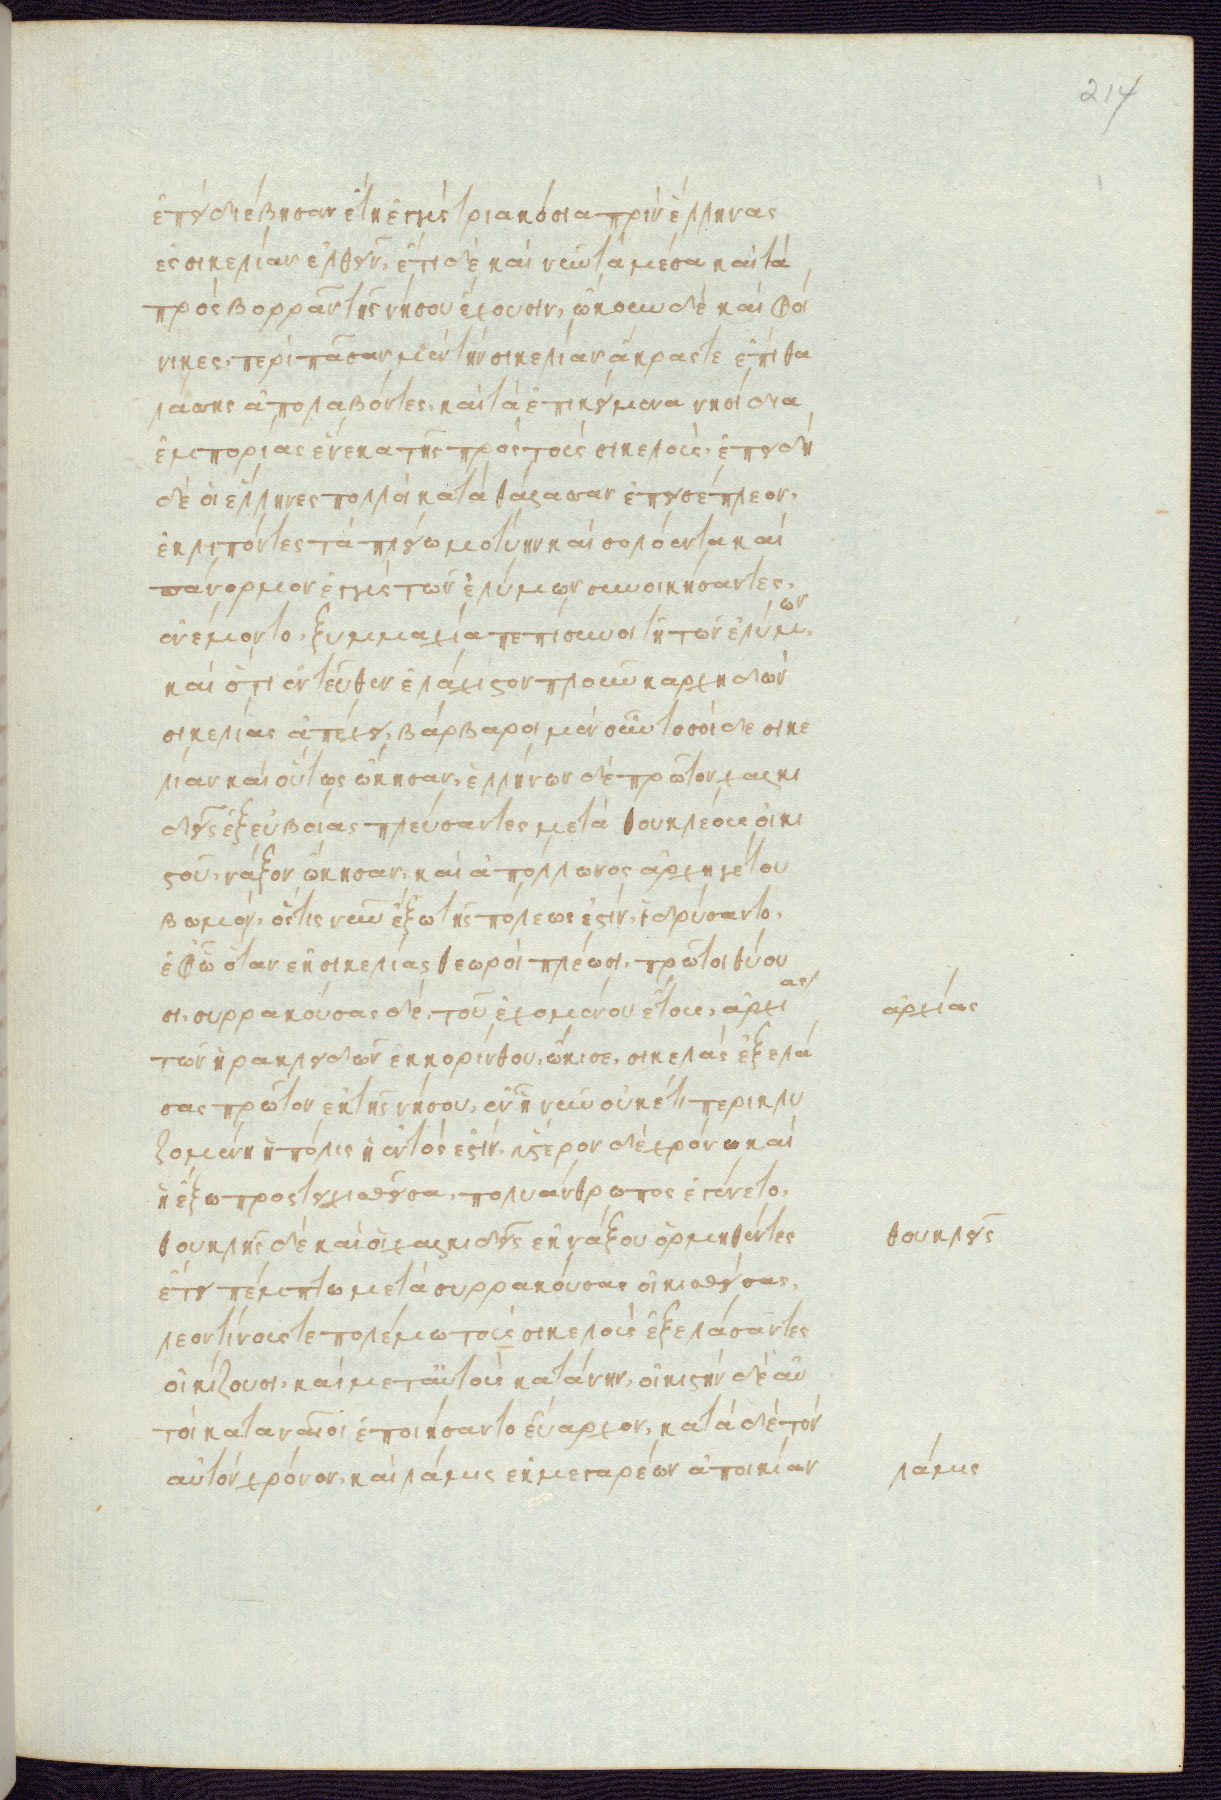 214
ἐπεὶ διέβησαν ἔτη ἐγγὺς τριακόσια πρὶν ἕλληνας
ἐς σικελίαν ἐλθεῖν, ἔτι δὲ καὶ νῦν τὰ μέσα καὶ τὰ
πρὸς βορρᾶν τῆς νήσου ἔχουσιν, ὤκουν δὲ καὶ φοί
νικες, περὶ πᾶσαν μὲν τὴν σικελίαν ἄκρας τε ἐπὶ θα
λάσσης ἀπολαβόντες, καὶ τὰ ἐπικείμενα νησίδια
ἐμπορίας ἕνεκα τῆς πρὸς τοὺς σικελούς, ἐπειδὴ
δὲ οἱ ἕλληνες πολλοὶ κατὰ θάλασσαν ἐπεισέπλεον,
ἐκλιπόντες τὰ πλείω μοτύην καὶ σολόεντα καὶ
πάνορμον ἐγγὺς τῶν ἐλύμων συνοικήσαντες,
ἐνέμοντο, ξυμμαχία πεπίσυνοι τῆ τῶν ἐλύμων,
καὶ ὅτι ἐντεῦθεν ἐλάχιστον πλοῦν καρχηδὼν
σικελίας ἀπέχει, βάρβαροι μὲν οὖν τοσοίδε σικε
λίαν καὶ οὕτως ὤκησαν, ἑλλήνων δὲ πρῶτον χαλκι
δεῖς ἐξ εὐβοίας πλεύσαντες μετὰ θουκλέους οἰκι
στοῦ, νάξον ὤκησαν, καὶ ἀπόλλωνος ἀρχηγέτου
βωμόν, ὅστις νῦν ἔξω τῆς πόλεως ἐστίν, ἱδρύσαντο,
ἐφ' ὧ ὅταν ἐκ σικελίας θεωροὶ πλέωσι, πρῶτοι θύου
σι, συρρακούσας δὲ, τοῦ ἐχομένου ἔτους, ἀρχίας
τῶν ἡρακλειδῶν ἐκ κορίνθου, ὤκισε, σικελὰς ἐξελά
σας πρῶτον ἐκ τῆς νήσου, ἐν ἧ νῦν οὐκέτι περικλυ
ζομένη ἡ πόλις ἡ ἐντός ἐστιν, ὕστερον δὲ χρόνω καὶ
ἡ ἔξω προστειχισθεῖσα, πολυάνθρωπος ἐγένετο,
θουκλῆς δὲ καὶ οἱ χαλκιδεῖς ἐκ νάξου ὁρμηθέντες
ἔτει πέμπτω μετὰ συρρακούσας οἰκισθείσας,
λεοντίνους τε πολέμω τοὺς σικελοὺς ἐξελάσαντες
οἰκίζουσι, καὶ μετ' αὐτοὺς κατάνην, οἰκιστὴν δὲ αὐ
τοὶ καταναῖοι ἐποιήσαντο εὔαρχον, κατὰ δὲ τὸν
αὐτὸν χρόνον, καὶ λάμις ἐκ μεγαρέων ἀποικίαν
ἀρχίας
θουκλεῖς
λάμις